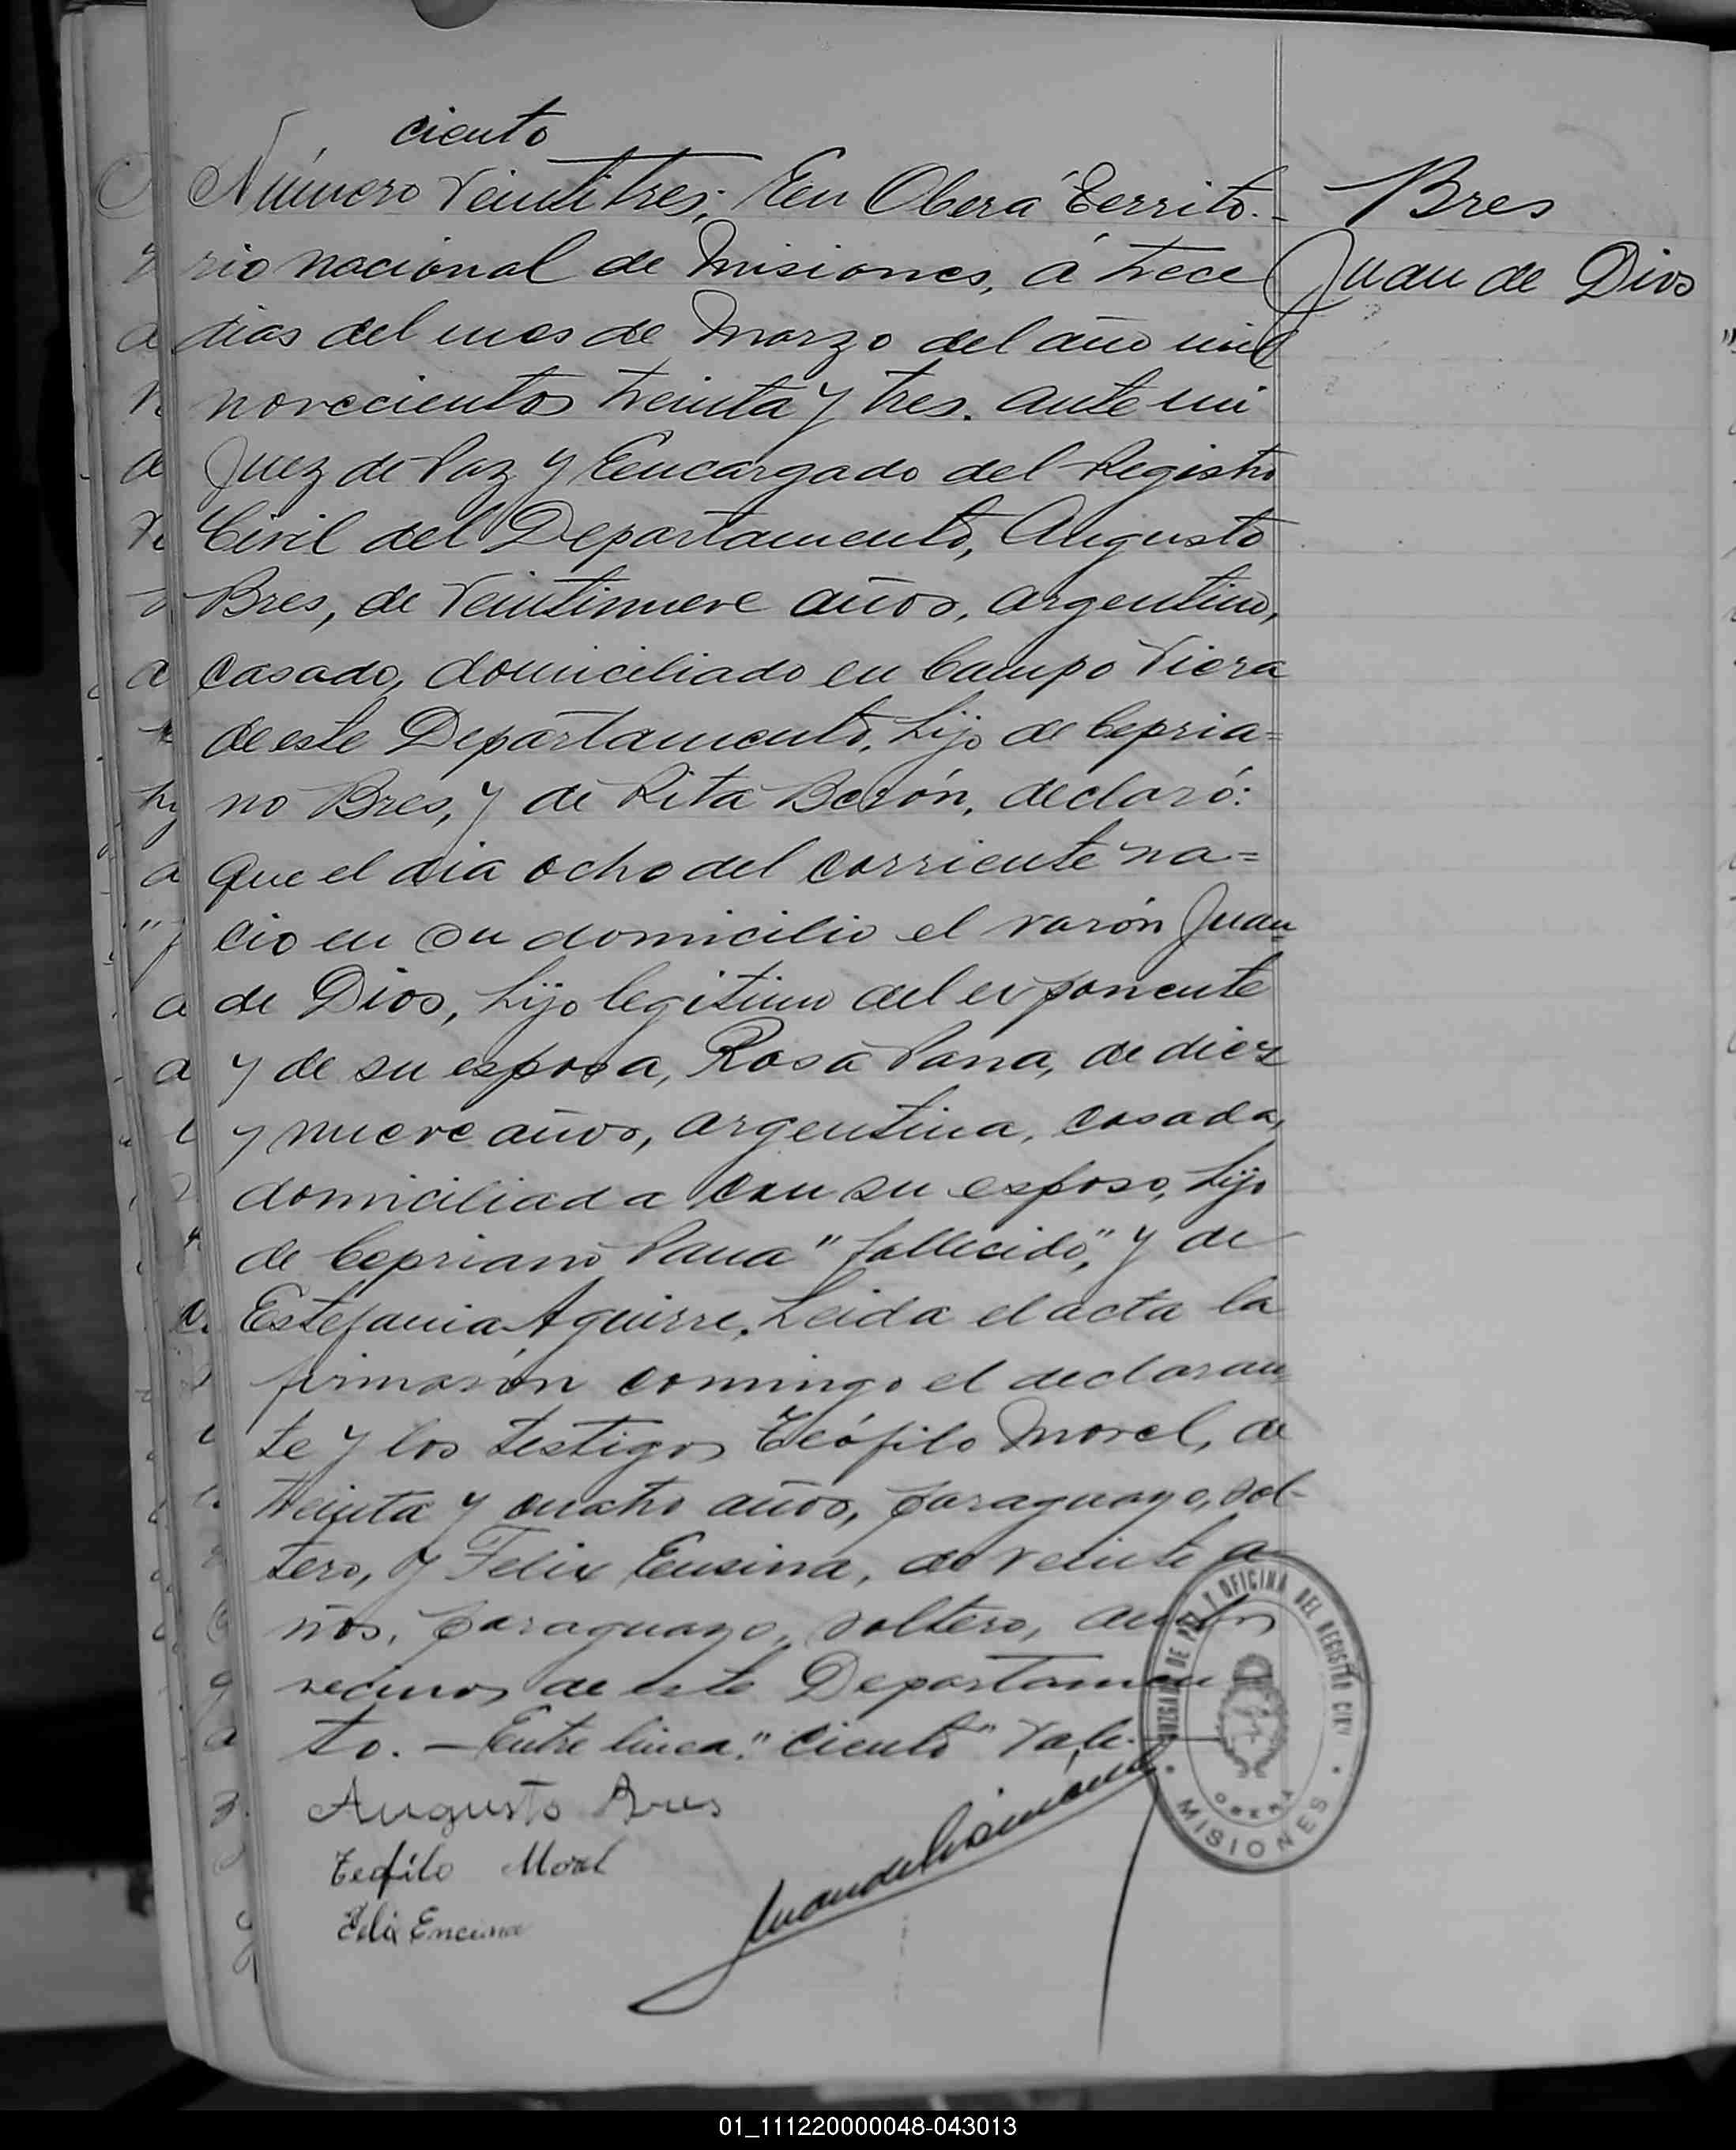 ciento
Número veintitres; En Oberá Territo-
rio nacional de Misiones, á trece
dias del mes de Marzo del año mil
novecientos treinta y tres. ante mi
Juez de Paz y Encargado del Registro
Civil del Departamento, Augusto
Bres, de veintinueve años, argentino,
casado, domiciliado en Campo Viera
de este Departamento, hijo de Cepria=
no Bres, y de Rita Berón, declaró:
que el dia ocho del corriente na=
cio en su domicilio el varón Juan
de Dios, hijo legitimo del exponente
y de su esposa, Rosa Pana, de diez
y nueve años, argentina, casada,
domiciliada con su esposo, hija
de Cepriano Pana "fallecido", y de
Estefania Aguirre. Leida el acta la
firmarón conmingo el declaran
te y los testigos Teófilo Morel, de
treinta y cuatro años, paraguayo, sol-
tero, y Felix Ensina, de veinte a
ños, paraguayo, soltero, ambos
vecinos de este Departamen
to. — Entre linea: "ciento" Vale.
Augusto Bres
Teofilo Morel
Felix Encina
Bres
Juan de Dios
JUZGADO DE PAZ Y OFICINA DEL REGISTRO CIVIL
OBERA
MISIONES
01_111220000048-043013